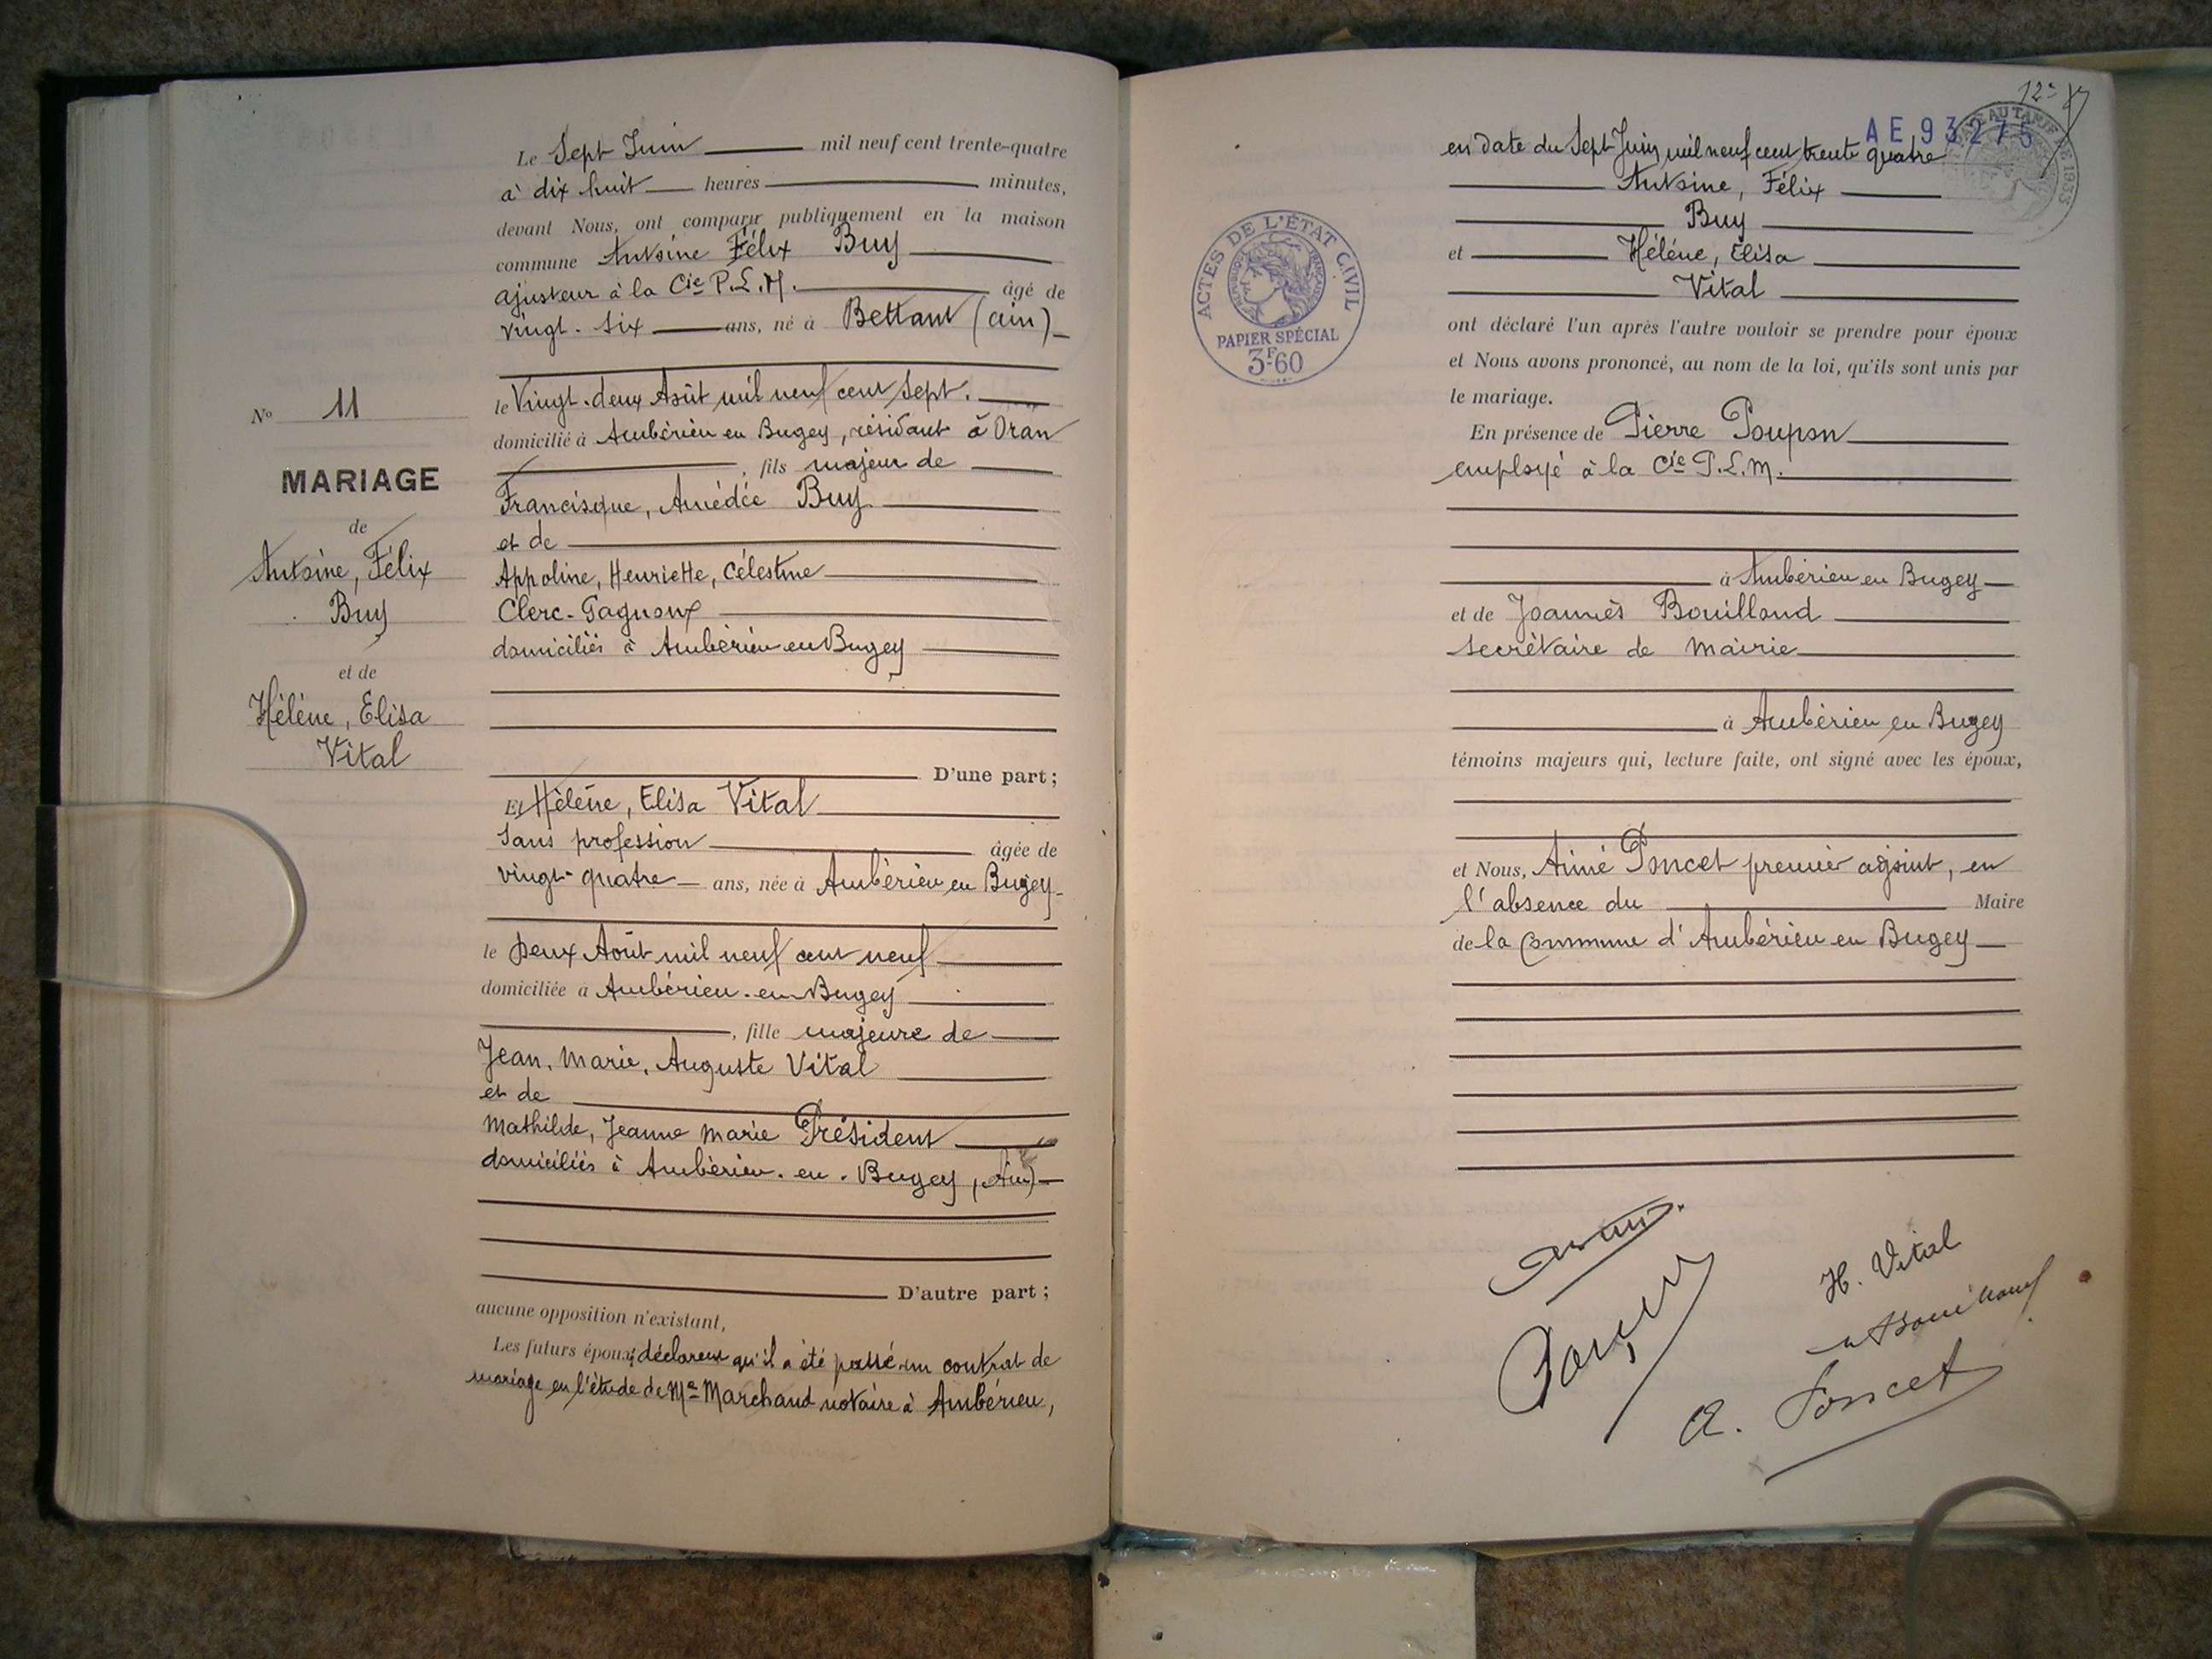 Le Sept Juin mil neuf cent trente-quatre
à dix huit heures minutes,
devant Nous, ont comparu publiquement en la maison
commune Antoine Félix Buy
ajusteur à la Cie P.L.M. âgé de
vingt-six ans, né à Bettant (ain)
le Vingt-deux Août mil neuf cent sept.
domicilié à Ambérieu en Bugey, résidant à Oran
, fils majeur de
Francisque, Amédée Buy
et de
Appoline, Henriette, Célestine
Clerc-Gagnoux
domiciliés à Ambérieu en Bugey
D'une part ;
No 11
MARIAGE
de
Antoine, Félix
Buy
et de
Hélène, Elisa
Vital
Et Hélène, Elisa Vital
Sans profession âgée de
vingt-quatre ans, née à Ambérieu en Bugey
le Deux Août mil neuf cent neuf
domiciliée à Ambérieu-en-Bugey
, fille majeure de
Jean, Marie, Auguste Vital
et de
Mathilde, Jeanne Marie Président
domiciliés à Ambérieu-en-Bugey, (Ain)
D'autre part ;
aucune opposition n'existant,
Les futurs époux déclarent qu'il a été passé un contrat de
mariage en l'étude de Me Marchand notaire à Ambérieu,
12e
AE 93275
en date du Sept Juin mil neuf cent trente quatre
Antoine, Félix
Buy
et Hélène, Elisa
Vital
ont déclaré l'un après l'autre vouloir se prendre pour époux
et Nous avons prononcé, au nom de la loi, qu'ils sont unis par
le mariage.
En présence de Pierre Poupon
employé à la Cie P.L.M.
à Ambérieu en Bugey
et de Joannès Bouilloud
secrétaire de Mairie
à Ambérieu en Bugey
témoins majeurs qui, lecture faite, ont signé avec les époux,
et Nous, Aimé Poncet premier adjoint, en
l'absence du Maire
de la Commune d'Ambérieu en Bugey
ACTES DE L'ÉTAT CIVIL
RÉPUBLIQUE FRANÇAISE
PAPIER SPÉCIAL
3F60
H. Vital
Bouilloud
A. Poncet